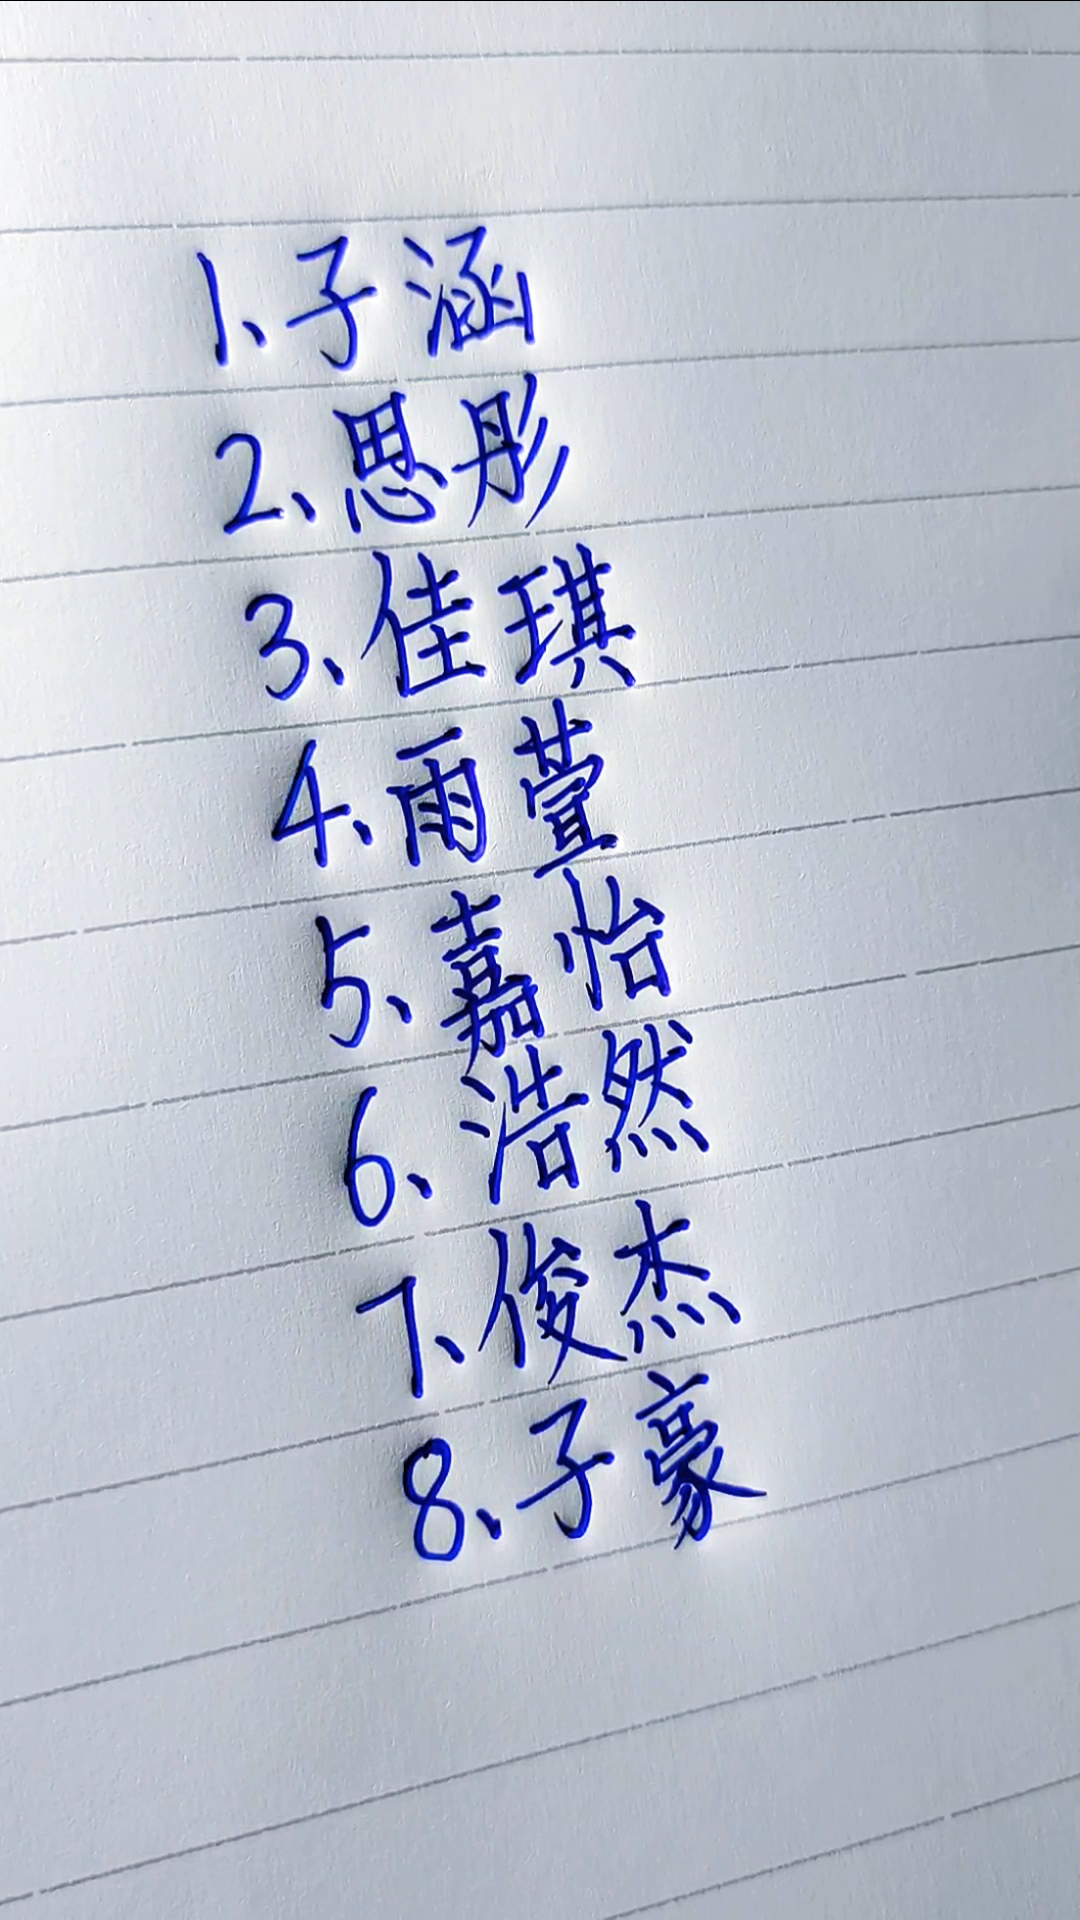 1、子涵
2、思彤
3、佳琪
4、雨萱
5、嘉怡
6、浩然
7、俊杰
8、子豪